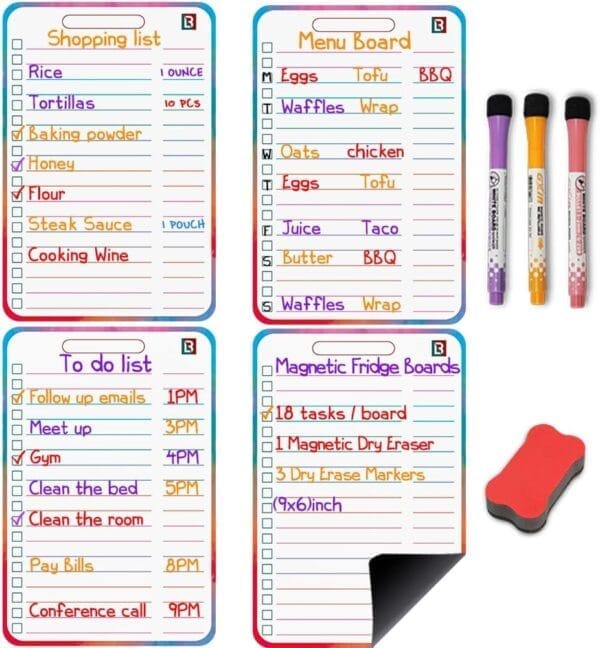 Shopping list
Rice 1 OUNCE
Tortillas 10 PCS
Baking powder
Honey
Flour
Steak Sauce 1 POUCH
Cooking Wine
Menu Board
M Eggs Tofu BBQ
T Waffles Wrap
W Oats chicken
T Eggs Tofu
F Juice Taco
S Butter BBQ
S Waffles Wrap
To do list
Follow up emails 1PM
Meet up 3PM
Gym 4PM
Clean the bed 5PM
Clean the room
Pay Bills 8PM
Conference call 9PM
Magnetic Fridge Boards
18 tasks / board
1 Magnetic Dry Eraser
3 Dry Erase Markers
(9x6)inch
WHITE BOARD
WHITE BOARD